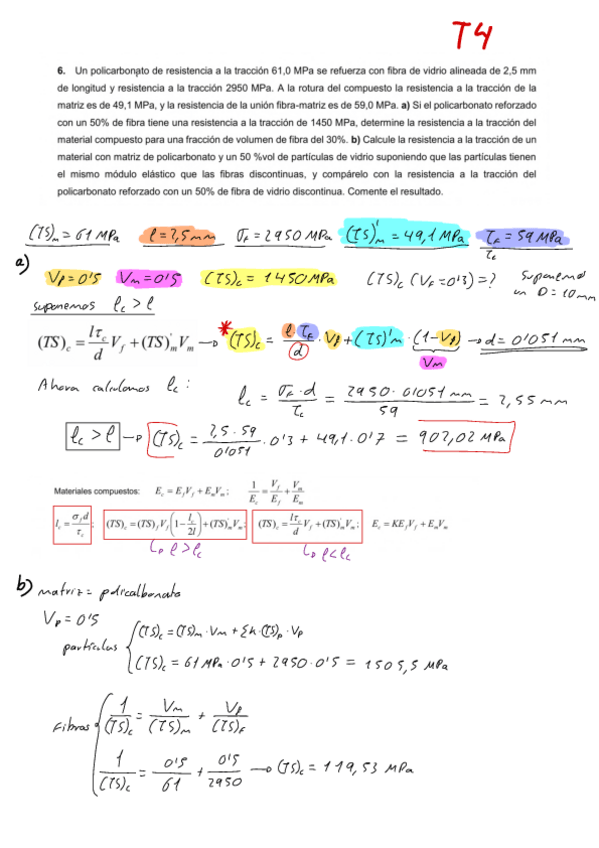 T4
6. Un policarbonato de resistencia a la tracción 61,0 MPa se refuerza con fibra de vidrio alineada de 2,5 mm
de longitud y resistencia a la tracción 2950 MPa. A la rotura del compuesto la resistencia a la tracción de la
matriz es de 49,1 MPa, y la resistencia de la unión fibra-matriz es de 59,0 MPa. a) Si el policarbonato reforzado
con un 50% de fibra tiene una resistencia a la tracción de 1450 MPa, determine la resistencia a la tracción del
material compuesto para una fracción de volumen de fibra del 30%. b) Calcule la resistencia a la tracción de un
material con matriz de policarbonato y un 50 %vol de partículas de vidrio suponiendo que las partículas tienen
el mismo módulo elástico que las fibras discontinuas, y compárelo con la resistencia a la tracción del
policarbonato reforzado con un 50% de fibra de vidrio discontinua. Comente el resultado.
(TS)m = 61 MPa l = 2,5 mm σF = 2950 MPa (TS)'m = 49,1 MPa τF = 59 MPa
τc
a)
Vf = 0'5 Vm = 0'5 (TS)c = 1450 MPa (TS)c (VF = 0'3) = ? suponemos
un D = 10 mm
suponemos lc > l
(TS)c = lτc/d Vf + (TS)'m Vm → *(TS)c = l τF/d · Vf + (TS)'m · (1-Vf) → d = 0'051 mm
Vm
Ahora calculamos lc :
lc = σF · d / τc = 2950 · 0'051 mm / 59 = 2,55 mm
lc > l → (TS)c = 2,5 · 59 / 0'051 · 0'3 + 49,1 · 0'7 = 902,02 MPa
Materiales compuestos: Ec = EfVf + EmVm ; 1/Ec = Vf/Ef + Vm/Em
lc = σf d/τc ; (TS)c = (TS)f Vf (1 - lc/2l) + (TS)'m Vm ; (TS)c = lτc/d Vf + (TS)'m Vm ; Ec = KEfVf + EmVm
↳ l > lc ↳ l < lc
b) matriz = policarbonato
Vp = 0'5
partículas
(TS)c = (TS)m · Vm + Σk · (TS)p · Vp
(TS)c = 61 MPa · 0'5 + 2950 · 0'5 = 1505,5 MPa
Fibras
1/(TS)c = Vm/(TS)m + Vf/(TS)F
1/(TS)c = 0'5/61 + 0'5/2950 → (TS)c = 119,53 MPa